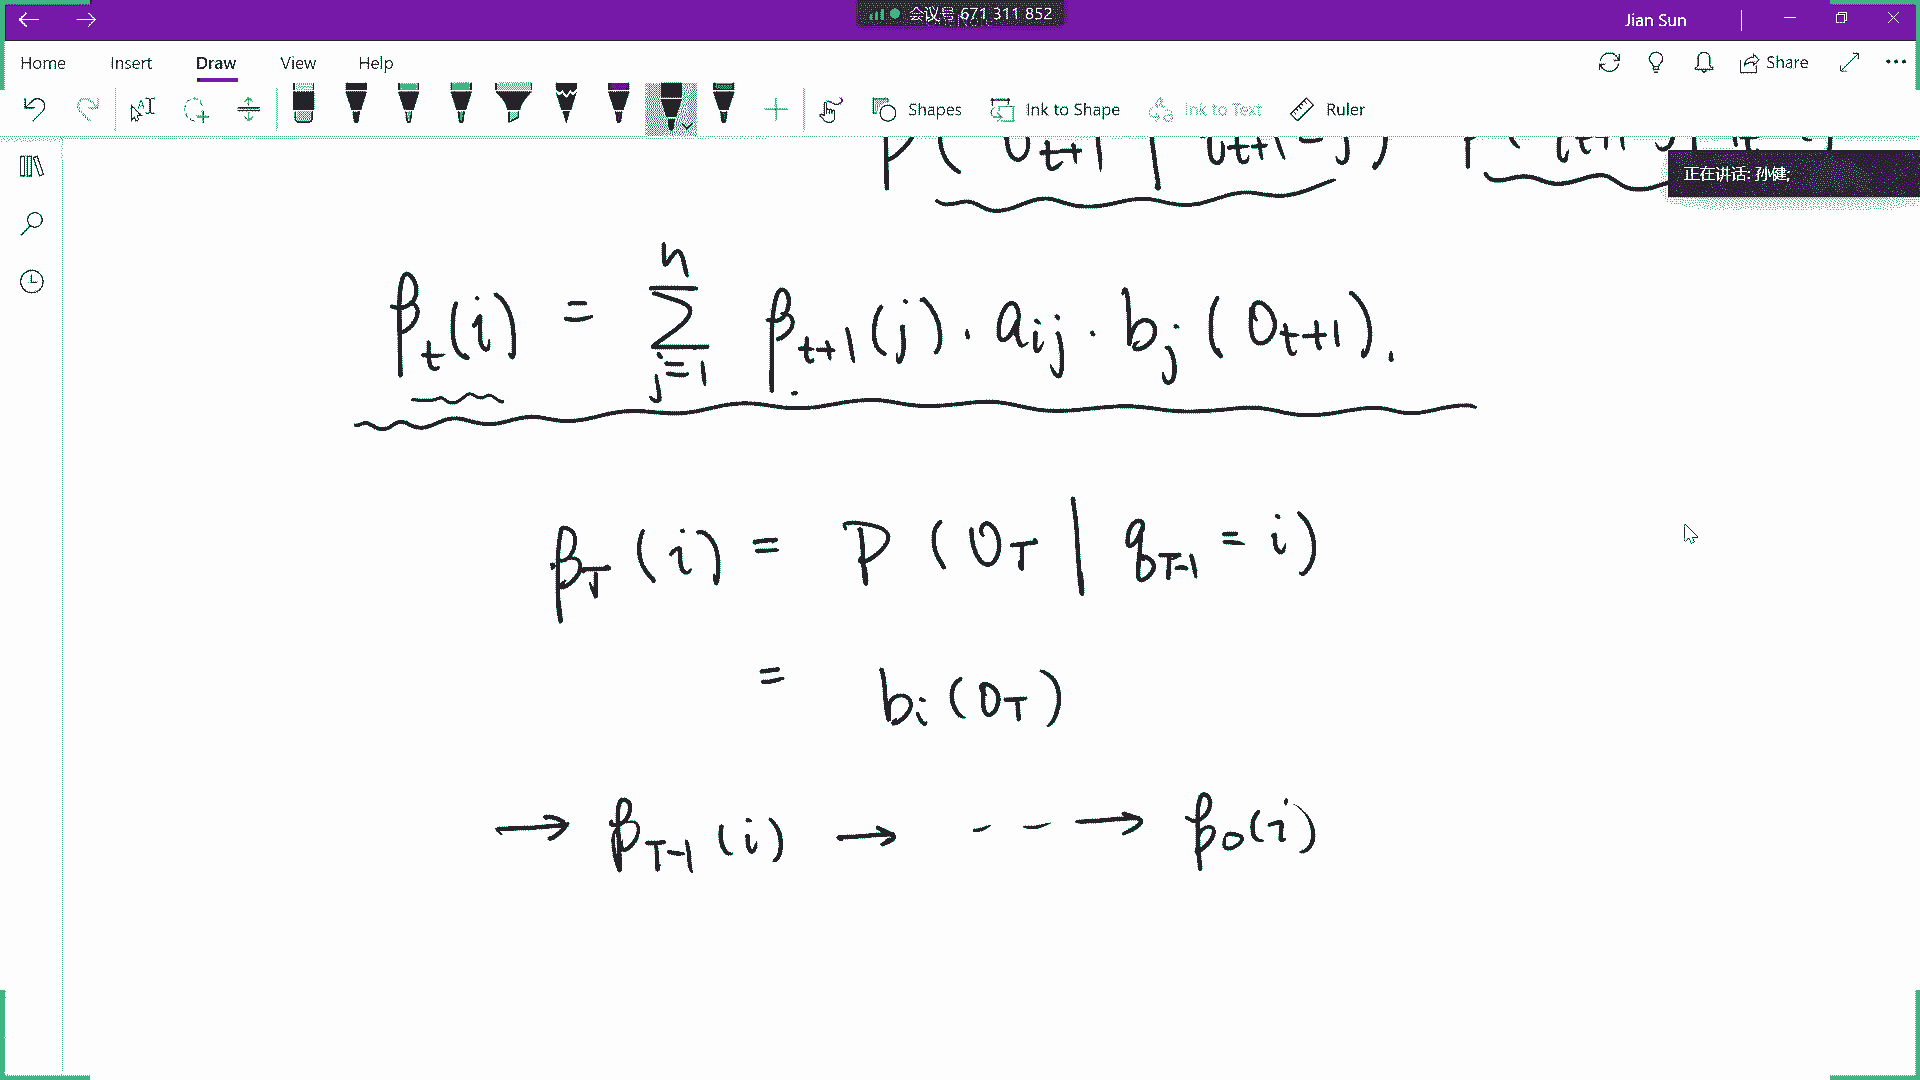 会议号 671 311 852
Jian Sun
Home Insert Draw View Help
Share
Shapes Ink to Shape Ink to Text Ruler
正在讲话: 孙健;
P( O_{t+1} | i_{t+1} = j )
β_t(i) = \sum_{j=1}^{n} β_{t+1}(j) · a_{ij} · b_j(O_{t+1}).
β_T(i) = P(O_T | q_{T-1} = i)
= b_i(O_T)
→ β_{T-1}(i) → - - → β_0(i)